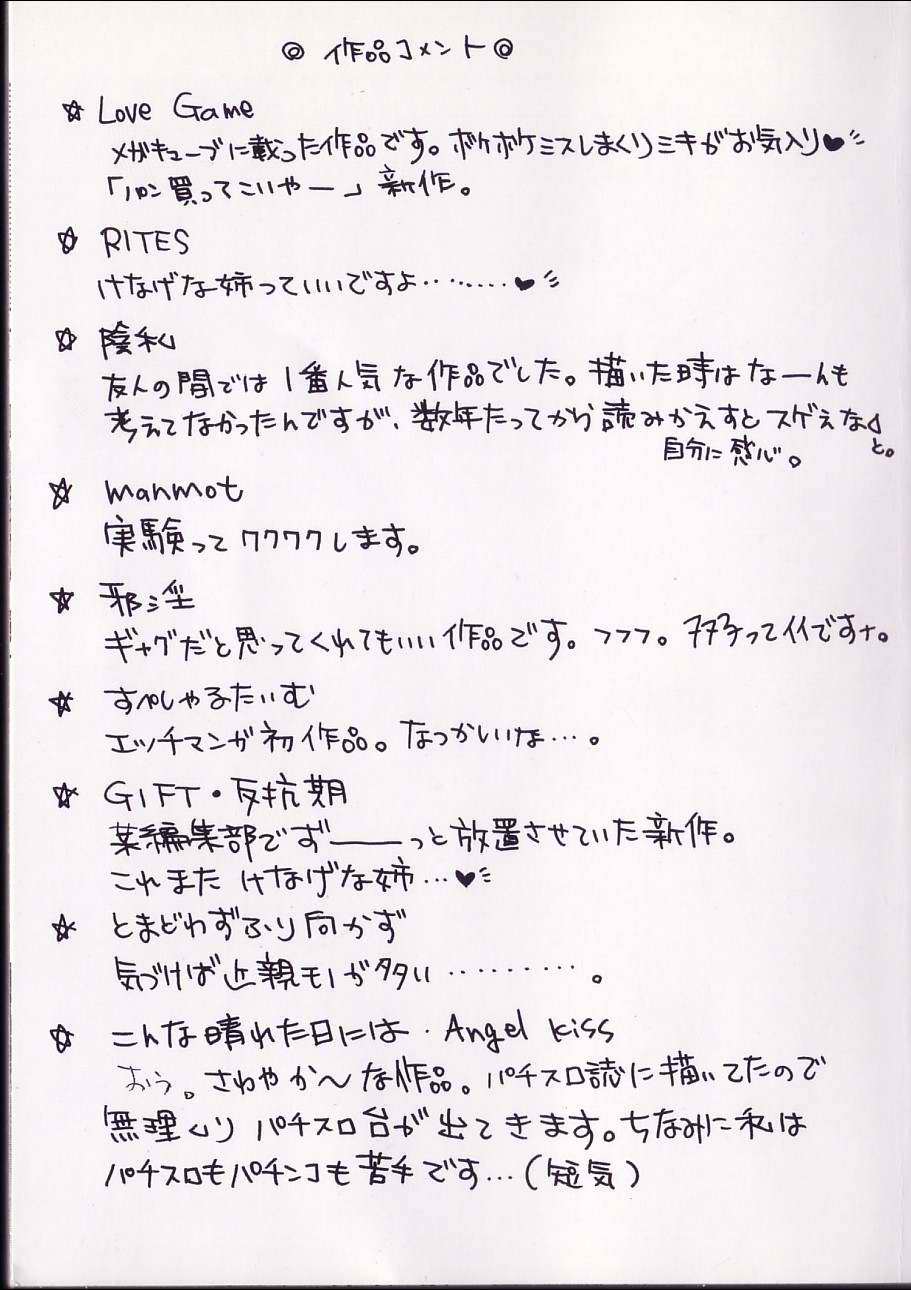 ◎ 作品コメント◎
☆ Love Game
メガキューブに載った作品です。ボケボケミスしまくりミキがお気入り♥
「パン買ってこいやー」新作。
☆ RITES
けなげな姉っていいですよ‥‥‥‥♥
☆ 陰私
友人の間では1番人気な作品でした。描いた時はなーんも
考えてなかったんですが、数年たってから読みかえすとスゲぇなぁと。
自分に感心。
☆ manmot
実験ってワクワクします。
☆ 邪淫
ギャグだと思ってくれてもいい作品です。フフフ。フタ子ってイイですナ。
☆ すぺしゃるたいむ
エッチマンガ初作品。なつかいいな…。
☆ GIFT・反抗期
某編集部でずーーっと放置させていた新作。
これまた けなげな姉…♥
☆ とまどわずふり向かず
気づけば近親モノが多い‥‥‥‥‥。
☆ こんな晴れた日には・Angel kiss
おう。さわやか〜な作品。パチスロ誌に描いてたので
無理くりパチスロ台が出てきます。ちなみに私は
パチスロもパチンコも苦手です…(短気)